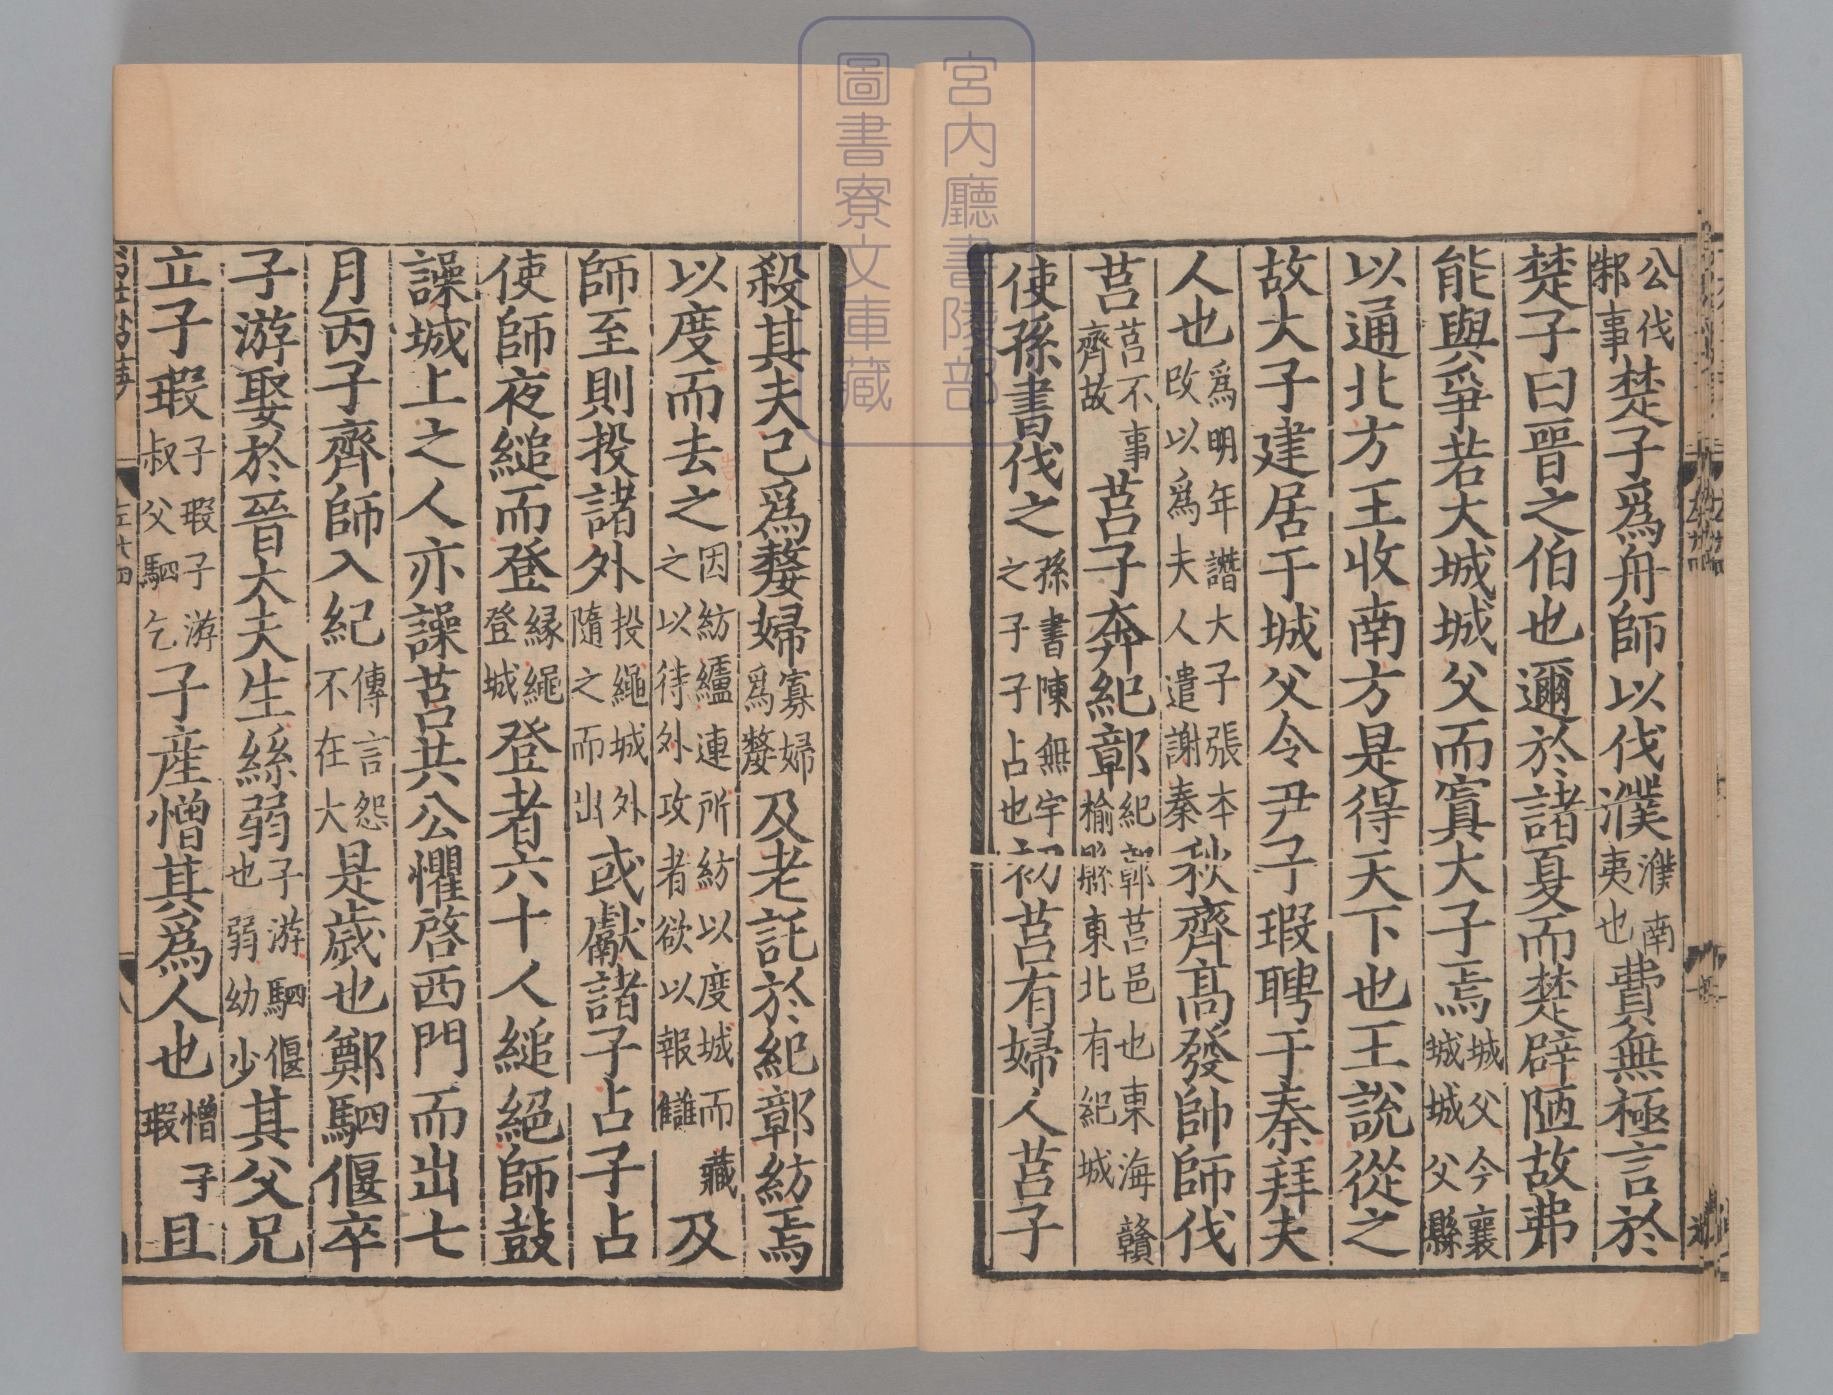 宮内廳書陵部
圖書寮文庫藏
公伐邾事楚子爲舟師以伐濮濮南夷也費無極言於
楚子曰晉之伯也邇於諸夏而楚辟陋故弗
能與爭若大城城父而寘大子焉城父今襄城城父縣
以通北方王收南方是得天下也王說從之
故大子建居于城父令尹子瑕聘于秦拜夫
人也爲明年譖大子張本改以爲夫人遣謝秦秋齊高發帥師伐
莒莒不事齊故莒子奔紀鄣紀鄣莒邑也東海贛榆縣東北有紀城
使孫書伐之孫書陳無宇之子子占也初莒有婦人莒子
殺其夫己爲嫠婦寡婦爲嫠及老託於紀鄣紡焉
以度而去之因紡纑連所紡以度城而藏之以待外攻者欲以報讎及
師至則投諸外投繩城外隨之而出或獻諸子占子占
使師夜縋而登緣繩登城登者六十人縋絕師鼓
譟城上之人亦譟莒共公懼啓西門而出七
月丙子齊師入紀傳言怨不在大是歲也鄭駟偃卒
子游娶於晉大夫生絲弱子游駟偃也弱幼少其父兄
立子瑕子瑕子游叔父駟乞子產憎其爲人也憎子瑕且